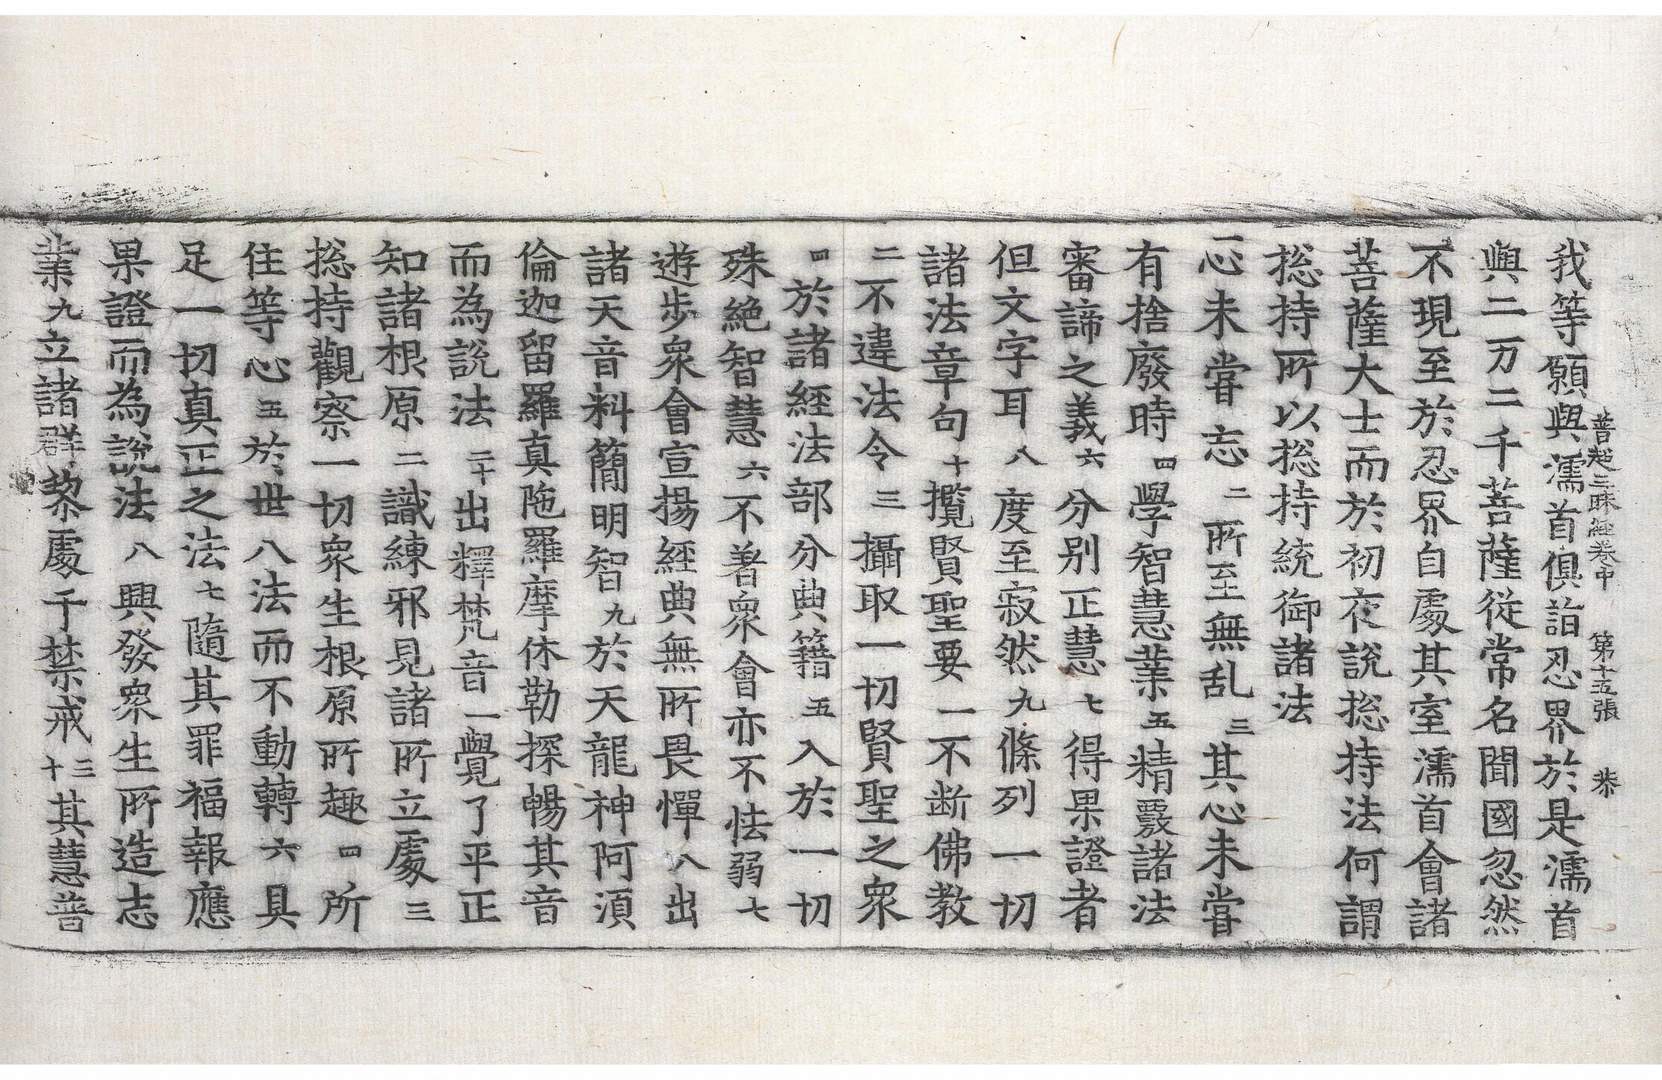 普超三昧經卷中　第十五張　恭
我等願與濡首俱詣忍界於是濡首
與二万二千菩薩從常名聞國忽然
不現至於忍界自處其室濡首會諸
菩薩大士而於初夜說揔持法何謂
揔持所以揔持統御諸法
一心未甞忘二所至無乱三其心未甞
有捨廢時四學智慧業五精覈諸法
審諦之義六分別正慧七得果證者
但文字耳八度至寂然九條列一切
諸法章句十攬賢聖要一不断佛教
二不違法令三攝取一切賢聖之眾
四於諸經法部分典籍五入於一切
殊絶智慧六不著眾會亦不怯弱七
遊步眾會宣揚經典無所畏憚八出
諸天音料簡明智九於天龍神阿須
倫迦留羅真陁羅摩休勒探暢其音
而為說法二十出釋梵音一覺了平正
知諸根原二識練邪見諸所立處三
揔持觀察一切眾生根原所趣四所
住等心五於世八法而不動轉六具
足一切真正之法七隨其罪福報應
果證而為說法八興發眾生所造志
業九立諸群黎處于禁戒三十其慧普